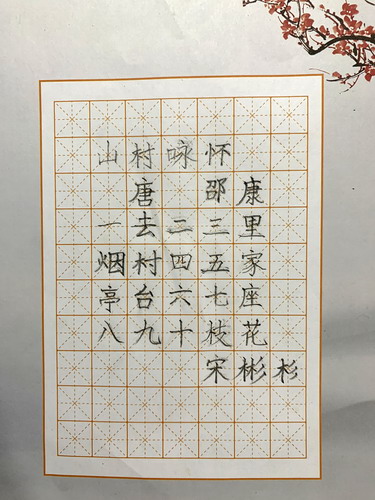 山村咏怀
唐 邵康
一去二三里
烟村四五家
亭台六七座
八九十枝花
宋彬杉